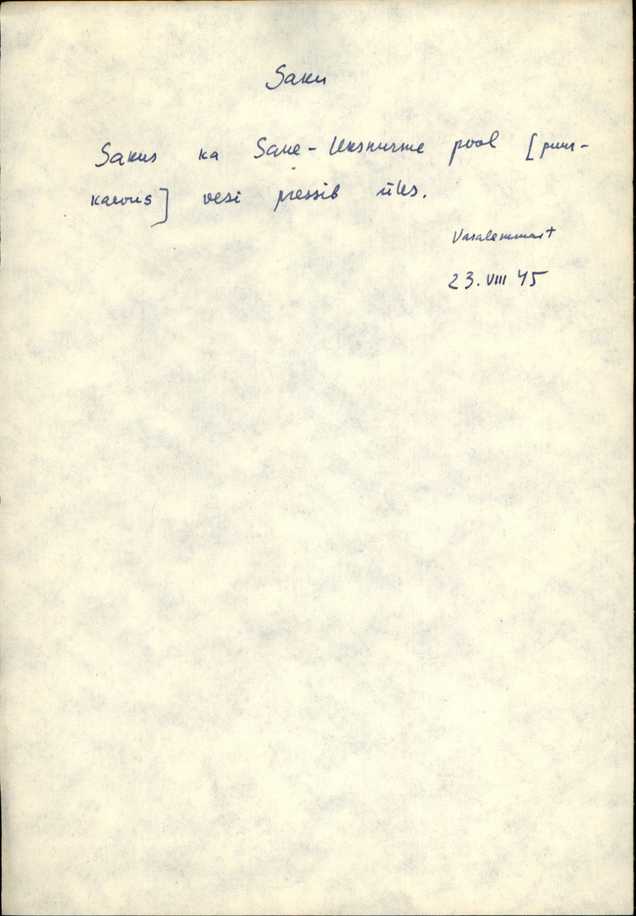 Saku
Sakus ka Saue-Üksnurme pool [puur-
kaevus] vesi pressib üles.
Vasalemmast
23. VIII 45